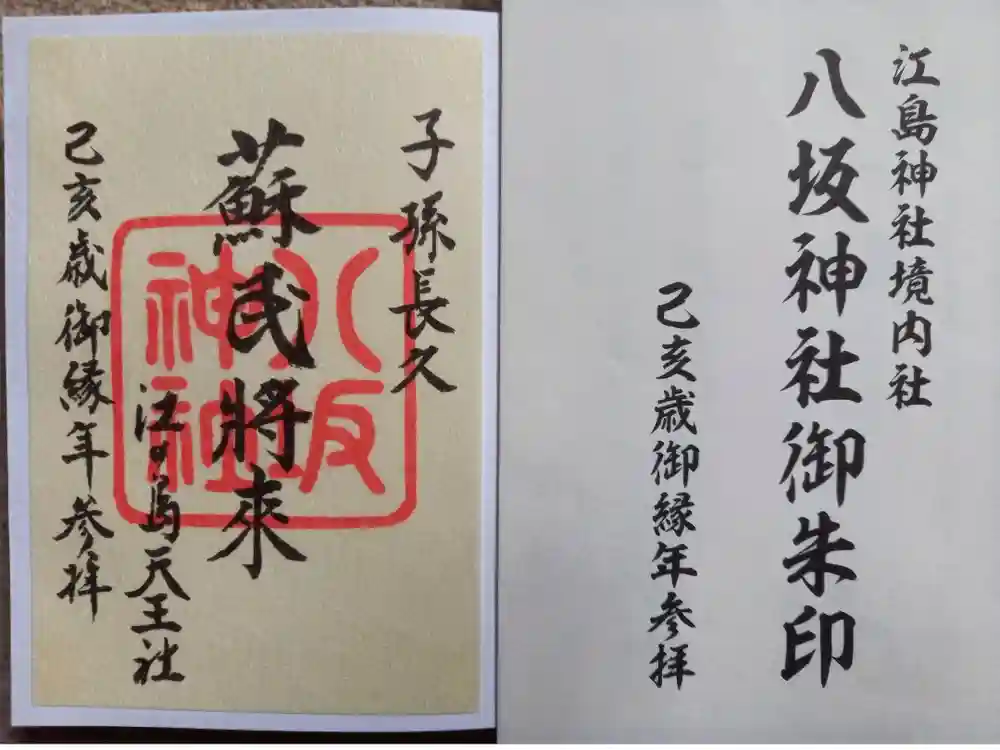 子孫長久
蘇民將來
江の島天王社
己亥歳御縁年参拝
八坂
神社
江島神社境内社
八坂神社御朱印
己亥歳御縁年参拝